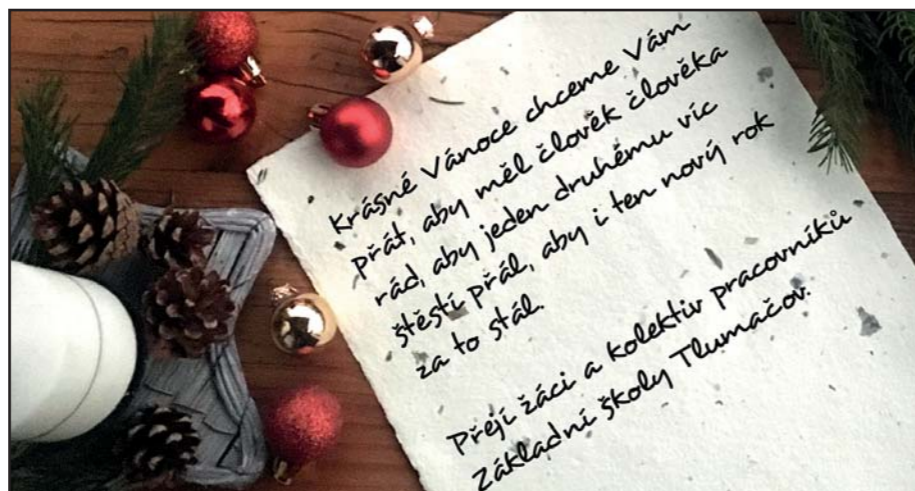 Krásné Vánoce chceme Vám
přát, aby měl člověk člověka
rád, aby jeden druhému víc
štěstí přál, aby i ten nový rok
za to stál.
Přejí žáci a kolektiv pracovníků
Základní školy Tlumačov.